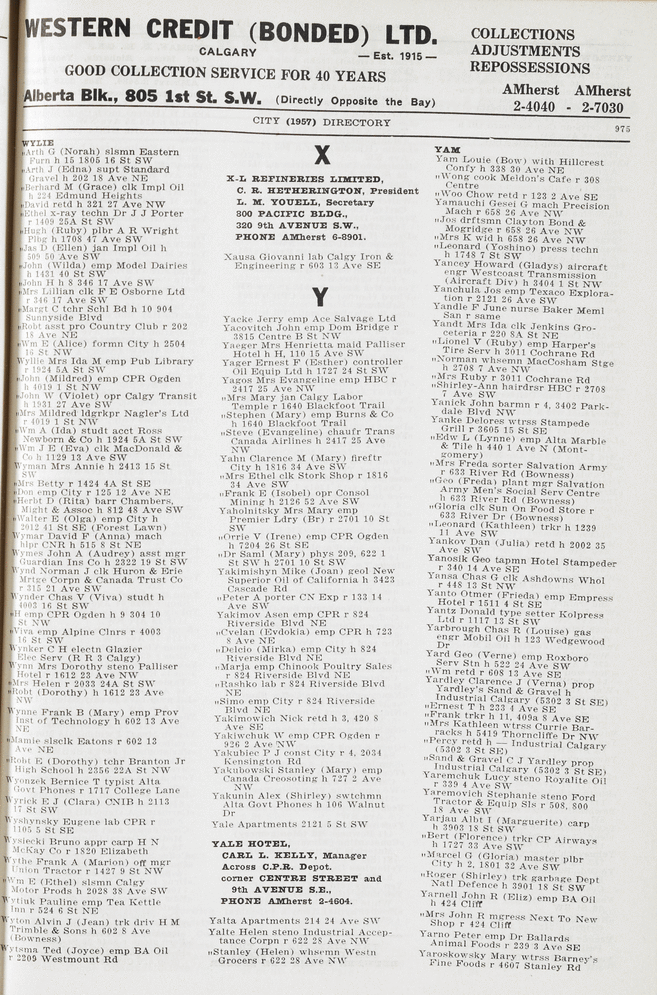 WESTERN CREDIT (BONDED) LTD.
CALGARY — Est. 1915 —
GOOD COLLECTION SERVICE FOR 40 YEARS
Alberta Blk., 805 1st St. S.W. (Directly Opposite the Bay)
COLLECTIONS
ADJUSTMENTS
REPOSSESSIONS
AMherst AMherst
2-4040 - 2-7030
CITY (1957) DIRECTORY
975
WYLIE
„Arth G (Norah) slsmn Eastern
Furn h 15 1805 16 St SW
„Arth J (Edna) supt Standard
Gravel h 202 18 Ave NE
„Berhard M (Grace) clk Impl Oil
h 224 Edmund Heights
„David retd h 321 27 Ave NW
„Ethel x-ray techn Dr J J Porter
r 1409 25A St SW
„Hugh (Ruby) plbr A R Wright
Plbg h 1708 47 Ave SW
„Jas D (Ellen) jan Impl Oil h
509 50 Ave SW
„John (Wilda) emp Model Dairies
h 1431 40 St SW
„John H h 8 346 17 Ave SW
„Mrs Lillian clk F E Osborne Ltd
r 346 17 Ave SW
„Margt C tchr Schl Bd h 10 904
Sunnyside Blvd
„Robt asst pro Country Club r 202
18 Ave NE
„Wm E (Alice) formn City h 2504
16 St NW
Wyllie Mrs Ida M emp Pub Library
r 1924 5A St SW
„John (Mildred) emp CPR Ogden
h 4019 1 St NW
„John W (Violet) opr Calgy Transit
h 1931 27 Ave SW
„Mrs Mildred ldgrkpr Nagler's Ltd
r 4019 1 St NW
„Wm A (Ida) studt acct Ross
Newborn & Co h 1924 5A St SW
„Wm J E (Eva) clk MacDonald &
Co h 1129 13 Ave SW
Wyman Mrs Annie h 2413 15 St
SW
„Mrs Betty r 1424 4A St SE
„Don emp City r 125 12 Ave NE
„Herbt D (Rita) barr Chambers,
Might & Assoc h 812 48 Ave SW
„Walter E (Olga) emp City h
2012 41 St SE (Forest Lawn)
Wymar David F (Anna) mach
hlpr CNR h 515 8 St NE
Wymes John A (Audrey) asst mgr
Guardian Ins Co h 2322 19 St SW
Wynd Norman J clk Huron & Erie
Mrtge Corpn & Canada Trust Co
r 315 21 Ave SW
Wynder Chas V (Viva) studt h
4003 16 St SW
„H emp CPR Ogden h 9 304 10
St NW
„Viva emp Alpine Clnrs r 4003
16 St SW
Wynker C H electn Glazier
Elec Serv (R R 3 Calgy)
Wynn Mrs Dorothy steno Palliser
Hotel r 1612 23 Ave NW
„Mrs Helen r 2033 24A St SW
„Robt (Dorothy) h 1612 23 Ave
NW
Wynne Frank B (Mary) emp Prov
Inst of Technology h 602 13 Ave
NE
„Mamie slsclk Eatons r 602 13
Ave NE
„Robt E (Dorothy) tchr Branton Jr
High School h 2356 22A St NW
Wyonzek Bernice T typist Alta
Govt Phones r 1717 College Lane
Wyrick E J (Clara) CNIB h 2113
17 St SW
Wyshynsky Eugene opr CPR r
1105 5 St SE
Wysiecki Bruno appr carp H N
McKay Co r 1820 Elizabeth
Wythe Frank A (Marion) off mgr
Union Tractor r 1427 9 St NW
„Wm E (Ethel) slsmn Calgy
Motor Prods h 2028 38 Ave SW
Wytiuk Pauline emp Tea Kettle
Inn r 524 6 St NE
Wyton Alvin J (Jean) trk driv H M
Trimble & Sons h 602 8 Ave
(Bowness)
Wytsma Ted (Joyce) emp BA Oil
r 2209 Westmount Rd
X
X-L REFINERIES LIMITED,
C. R. HETHERINGTON, President
L. M. YOUELL, Secretary
800 PACIFIC BLDG.,
320 9th AVENUE S.W.,
PHONE AMherst 6-8901.
Xausa Giovanni lab Calgy Iron &
Engineering r 603 13 Ave SE
Y
Yacke Jerry emp Ace Salvage Ltd
Yacovitch John emp Dom Bridge r
3815 Centre B St NW
Yaeger Mrs Henrietta maid Palliser
Hotel h H, 110 15 Ave SW
Yager Ernest F (Esther) controller
Oil Equip Ltd h 1727 24 St SW
Yagos Mrs Evangeline emp HBC r
2417 25 Ave NW
„Mrs Mary jan Calgy Labor
Temple r 1640 Blackfoot Trail
„Stephen (Mary) emp Burns & Co
h 1640 Blackfoot Trail
„Steve (Evangeline) chaufr Trans
Canada Airlines h 2417 25 Ave
NW
Yahn Clarence M (Mary) fireftr
City h 1816 34 Ave SW
„Mrs Ethel clk Stork Shop r 1816
34 Ave SW
„Frank E (Isobel) opr Consol
Mining h 2126 52 Ave SW
Yaholnitsky Mrs Mary emp
Premier Ldry (Br) r 2701 10 St
SW
„Orrie V (Irene) emp CPR Ogden
h 7204 26 St SE
„Dr Saml (Mary) phys 209, 622 1
St SW h 2701 10 St SW
Yakimishyn Mike (Joan) geol New
Superior Oil of California h 3423
Cascade Rd
„Peter A porter CN Exp r 133 14
Ave SW
Yakimow Asen emp CPR r 824
Riverside Blvd NE
„Cvelan (Evdokia) emp CPR h 723
8 Ave NE
„Delcio (Mirka) emp City h 824
Riverside Blvd NE
„Marja emp Chinook Poultry Sales
r 824 Riverside Blvd NE
„Rashko lab r 824 Riverside Blvd
NE
„Simo emp City r 824 Riverside
Blvd NE
Yakimowich Nick retd h 3, 420 8
Ave SE
Yakiwchuk W emp CPR Ogden r
926 2 Ave NW
Yakubiec P J const City r 4, 2034
Kensington Rd
Yakubowski Stanley (Mary) emp
Canada Creosoting h 727 2 Ave
NW
Yakunin Alex (Shirley) swtchmn
Alta Govt Phones h 106 Walnut
Dr
Yale Apartments 2121 5 St SW
YALE HOTEL,
CARL L. KELLY, Manager
Across C.P.R. Depot.
corner CENTRE STREET and
9th AVENUE S.E.,
PHONE AMherst 2-4604.
Yalta Apartments 214 24 Ave SW
Yalte Helen steno Industrial Accep-
tance Corpn r 622 28 Ave NW
„Stanley (Helen) whsemn Westn
Grocers r 622 28 Ave NW
YAM
Yam Louie (Bow) with Hillcrest
Confy h 338 30 Ave NE
„Wong cook Meidon's Cafe r 308
Centre
„Woo Chow retd r 123 2 Ave SE
Yamauchi Gesei G mach Precision
Mach r 658 26 Ave NW
„Jos drftsmn Clayton Bond &
Mogridge r 658 26 Ave NW
„Mrs K wid h 658 26 Ave NW
„Leonard (Yoshino) press techn
h 1748 7 St SW
Yancey Howard (Gladys) aircraft
engr Westcoast Transmission
(Aircraft Div) h 3404 1 St NW
Yanchula Jos emp Texaco Explora-
tion r 2121 26 Ave SW
Yandle F June nurse Baker Meml
San r same
Yandt Mrs Ida clk Jenkins Gro-
ceteria r 220 8A St NE
„Lionel V (Ruby) emp Harper's
Tire Serv h 3011 Cochrane Rd
„Norman whsemn MacCosham Stge
h 2708 7 Ave NW
„Mrs Ruby r 3011 Cochrane Rd
„Shirley-Ann hairdrsr HBC r 2708
7 Ave SW
Yanick John barmn r 4, 3402 Park-
dale Blvd NW
Yanke Delores wtrss Stampede
Grill r 3605 15 St SE
„Edw L (Lynne) emp Alta Marble
& Tile h 440 1 Ave N (Mont-
gomery)
„Mrs Freda sorter Salvation Army
r 633 River Rd (Bowness)
„Geo (Freda) plant mgr Salvation
Army Men's Social Serv Centre
h 633 River Rd (Bowness)
„Gloria clk Sun On Food Store r
633 River Dr (Bowness)
„Leonard (Kathleen) trkr h 1239
11 Ave SW
Yankov Dan (Julia) retd h 2002 35
Ave SW
Yanosik Geo tapmn Hotel Stampeder
r 340 14 Ave SE
Yansa Chas G clk Ashdowns Whol
r 448 13 St NW
Yanto Otmer (Frieda) emp Empress
Hotel r 1511 4 St SE
Yantz Donald type setter Kolpress
Ltd r 1117 13 St SW
Yarbrough Chas R (Louise) gas
engr Mobil Oil h 123 Wedgewood
Dr
Yard Geo (Verne) emp Roxboro
Serv Stn h 522 24 Ave SW
„Wm retd r 608 13 Ave SE
Yardley Clarence J (Verna) prop
Yardley's Sand & Gravel h
Industrial Calgary (5302 3 St SE)
„Ernest T h 233 4 Ave SE
„Frank trkr h 11, 409a 8 Ave SE
„Mrs Kathleen wtrss Currie Bar-
racks h 5419 Thorncliffe Dr NW
„Percy retd h — Industrial Calgary
(5302 3 St SE)
„Sand & Gravel C J Yardley prop
Industrial Calgary (5302 3 St SE)
Yaremchuk Lucy steno Royalite Oil
r 339 4 Ave SW
Yaremovich Stephanie steno Ford
Tractor & Equip Sls r 508, 800
18 Ave SW
Yarjau Albt I (Marguerite) carp
h 3903 18 St SW
„Bert (Florence) trkr CP Airways
h 1727 33 Ave SW
„Marcel G (Gloria) master plbr
City h 2, 1801 32 Ave SW
„Roger (Shirley) trk garbage Dept
Natl Defence h 3901 18 St SW
Yarnell John R (Eliz) emp BA Oil
h 424 Cliff
„Mrs John R mgress Next To New
Shop r 424 Cliff
Yarno Peter emp Dr Ballards
Animal Foods r 239 3 Ave SE
Yaroskowsky Mary wtrss Barney's
Fine Foods r 4607 Stanley Rd